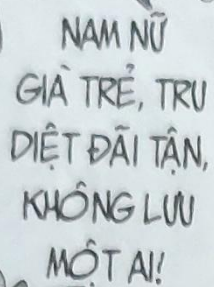 NAM NỮ
GIÀ TRẺ, TRU
DIỆT ĐÃI TẬN,
KHÔNG LƯU
MỘT AI!